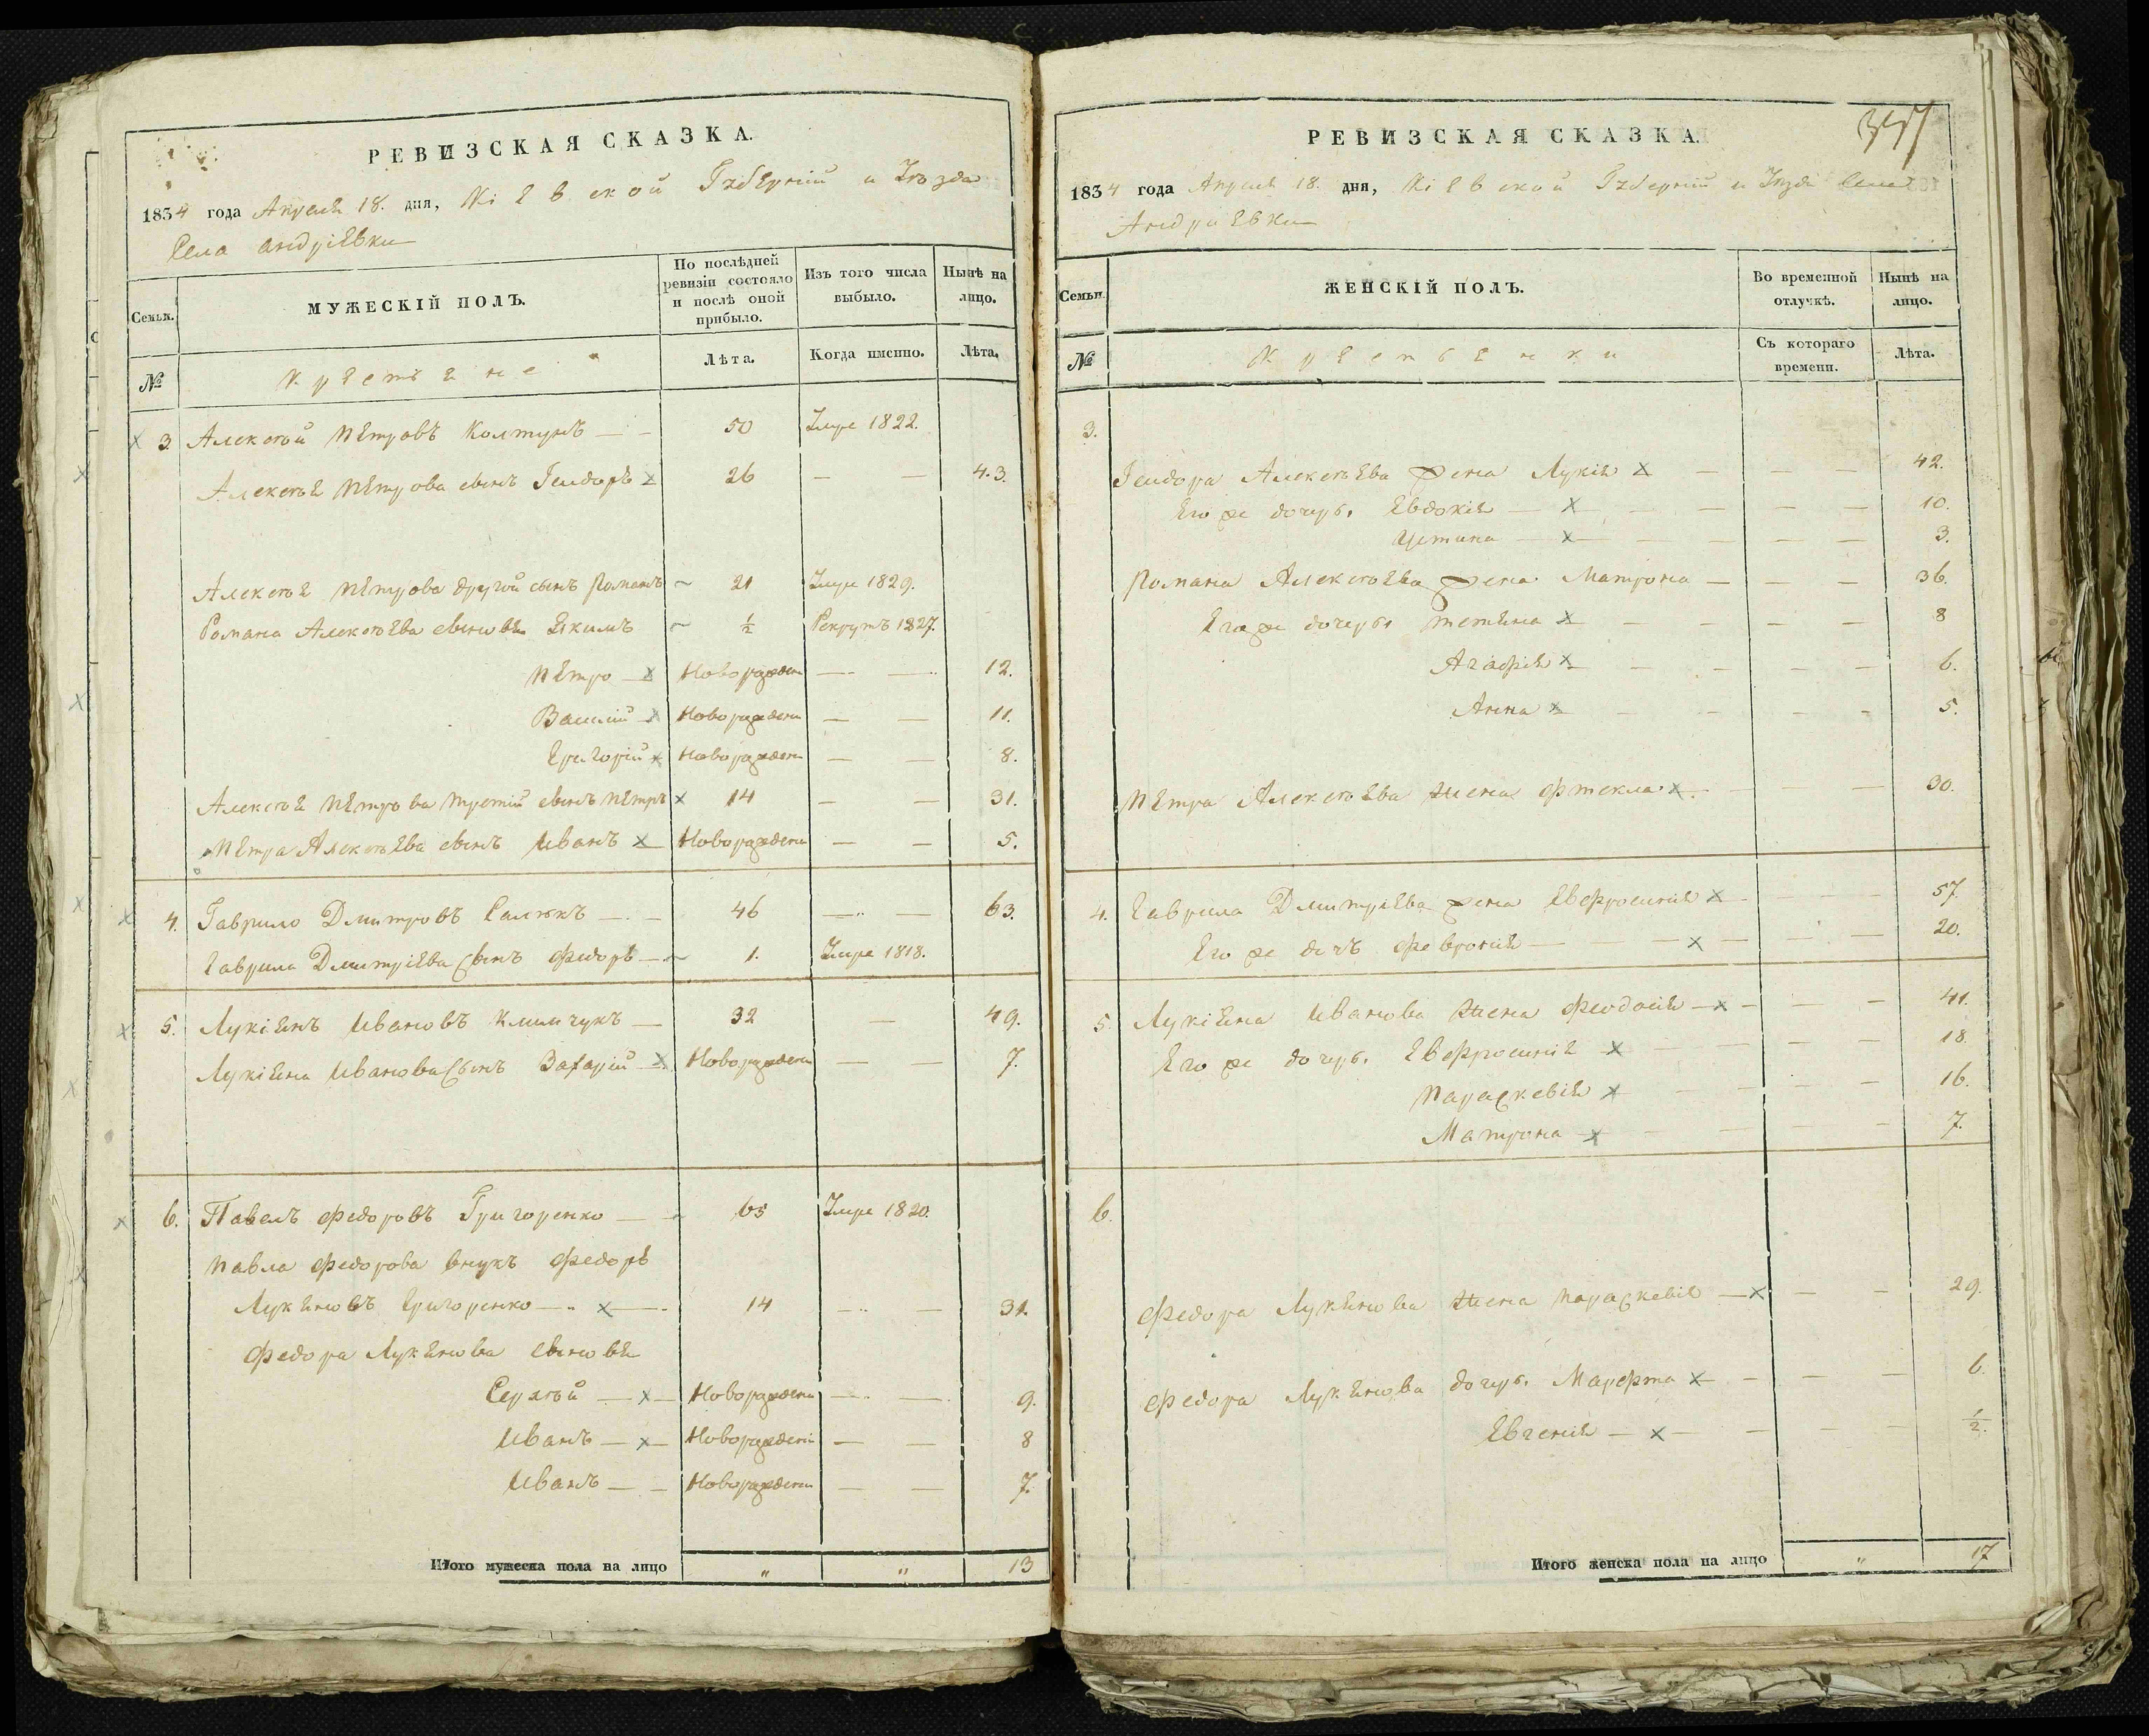 РЕВИЗСКАЯ СКАЗКА.
1834 года Апреля 18. дня, Кіевской Губерніи и Уѣзда
Села Андріевки
Семьи.
МУЖЕСКІЙ ПОЛЪ.
По послѣдней ревизіи состояло и послѣ оной прибыло.
Изъ того числа выбыло.
Нынѣ на лицо.
№
Крестьяне
Лѣта.
Когда именно.
Лѣта.
3 Алексѣй Петровъ Колтунъ 50 Умре 1822.
Алексѣя Петрова сынъ Сидоръ 26 — — 43.
Алексѣя Петрова другой сынъ Романъ 21 Умре 1829.
Романа Алексѣева сыновья Якимъ ½ Рекрутъ 1827.
Петро Новорожден — — 12.
Василій Новорожден — — 11.
Григорій Новорожден — — 8.
Алексѣя Петрова третій сынъ Петръ 14 — — 31.
Петра Алексѣева сынъ Иванъ Новорожден — — 5.
4. Гаврило Дмитровъ Салюкъ 46 — — 63.
Гаврила Дмитріева сынъ Федоръ 1. Умре 1818.
5. Лукіянъ Ивановъ Климчукъ 32 — 49.
Лукіяна Иванова сынъ Захарій Новорожден — — 7.
6. Павелъ Федоровъ Григоренко 65 Умре 1820.
Павла Федорова внукъ Федоръ
Лукяновъ Григоренко 14 — — 31.
Федора Лукянова сыновья
Сергѣй Новорожден — — 9.
Иванъ Новорожден — — 8
Иванъ Новорожден — — 7.
Итого мужеска пола на лицо „ „ 13
РЕВИЗСКАЯ СКАЗКА.
1834 года Апреля 18. дня, Кіевской Губерніи и Уѣзда Села
Андриевки
Семьи.
ЖЕНСКІЙ ПОЛЪ.
Во временной отлучкѣ.
Нынѣ на лицо.
№
Крестьянки
Съ котораго времени.
Лѣта.
3.
Сидора Алексѣева жена Лукія — — — 42.
Его же дочери Евдокія — — — 10.
Устина — — — 3.
Романа Алексѣева жена Матрона — — — 36.
Его же дочери Тетяна — — — 8
Агафія — — — 6.
Анна — — — 5.
Петра Алексѣева жена Фтекла — — — 30.
4. Гаврила Дмитріева жена Евфросинія — — — 57
Его же дочь Февронія — — — 20.
5. Лукіяна Иванова жена Феодосія — — — 41.
Его же дочери Евфросинія — — — 18.
Параскевія — — — 16.
Матрона — — — 7.
6.
Федора Лукянова жена Параскевія — — — 29.
Федора Лукянова дочери Марфта — — — 6
Евгенія — — — ½.
Итого женска пола на лицо „ 17